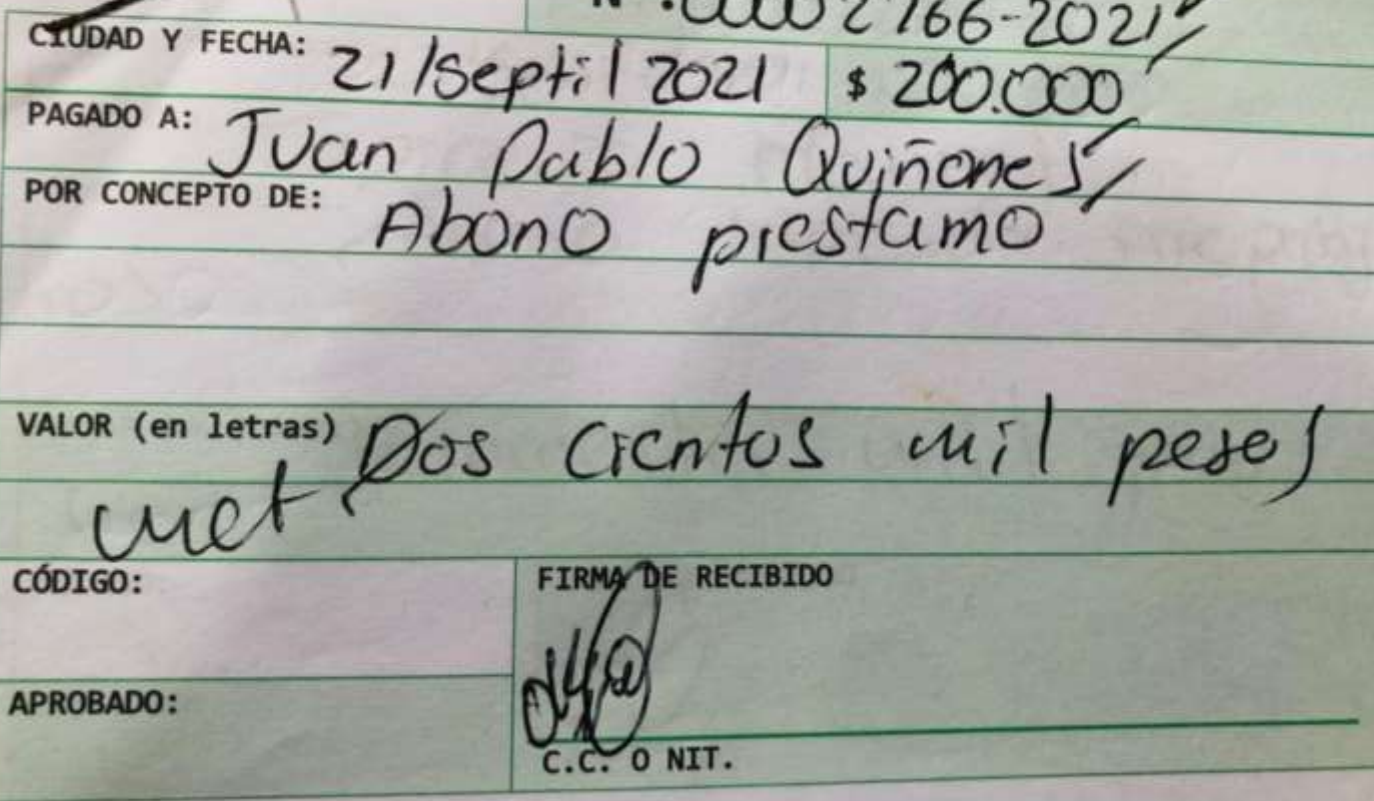 N°.00002766-2021
CIUDAD Y FECHA: 21/Septi/2021 $ 200.000
PAGADO A: Juan Pablo Quiñones
POR CONCEPTO DE: Abono prestamo
VALOR (en letras) Dos cientos mil pesos
mct
CÓDIGO:
FIRMA DE RECIBIDO
APROBADO:
C.C. O NIT.